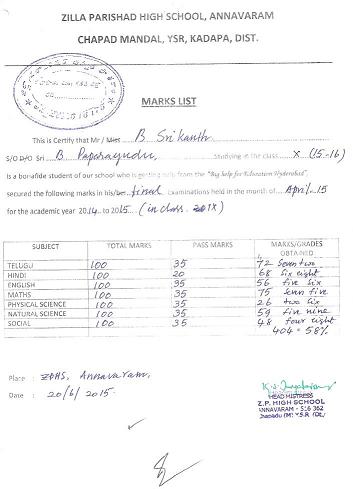 ZILLA PARISHAD HIGH SCHOOL, ANNAVARAM
CHAPAD MANDAL, YSR, KADAPA, DIST.
MARKS LIST
This is Certify that Mr / Miss B Srikanth
S/O D/O Sri B. Papa Studying in the class X (15-16)
is a bonafide student of our school who is getting help from the "Big help for Education Hyderabad",
secured the following marks in his/her final Examinations held in the month of April. 15
for the academic year 2014 to 2015 (in class IX)
SUBJECT TOTAL MARKS PASS MARKS MARKS/GRADES OBTAINED
TELUGU 100 35 72 Seven two
HINDI 100 20 68 six eight
ENGLISH 100 35 56 five six
MATHS 100 35 75 seven five
PHYSICAL SCIENCE 100 35 26 two six
NATURAL SCIENCE 100 35 59 five nine
SOCIAL 100 35 48 four eight
404 = 58%
Place : ZPHS, Annavaram.
Date : 20/6/2015.
HEAD MISTRESS
Z.P. HIGH SCHOOL
ANNAVARAM - 516 362